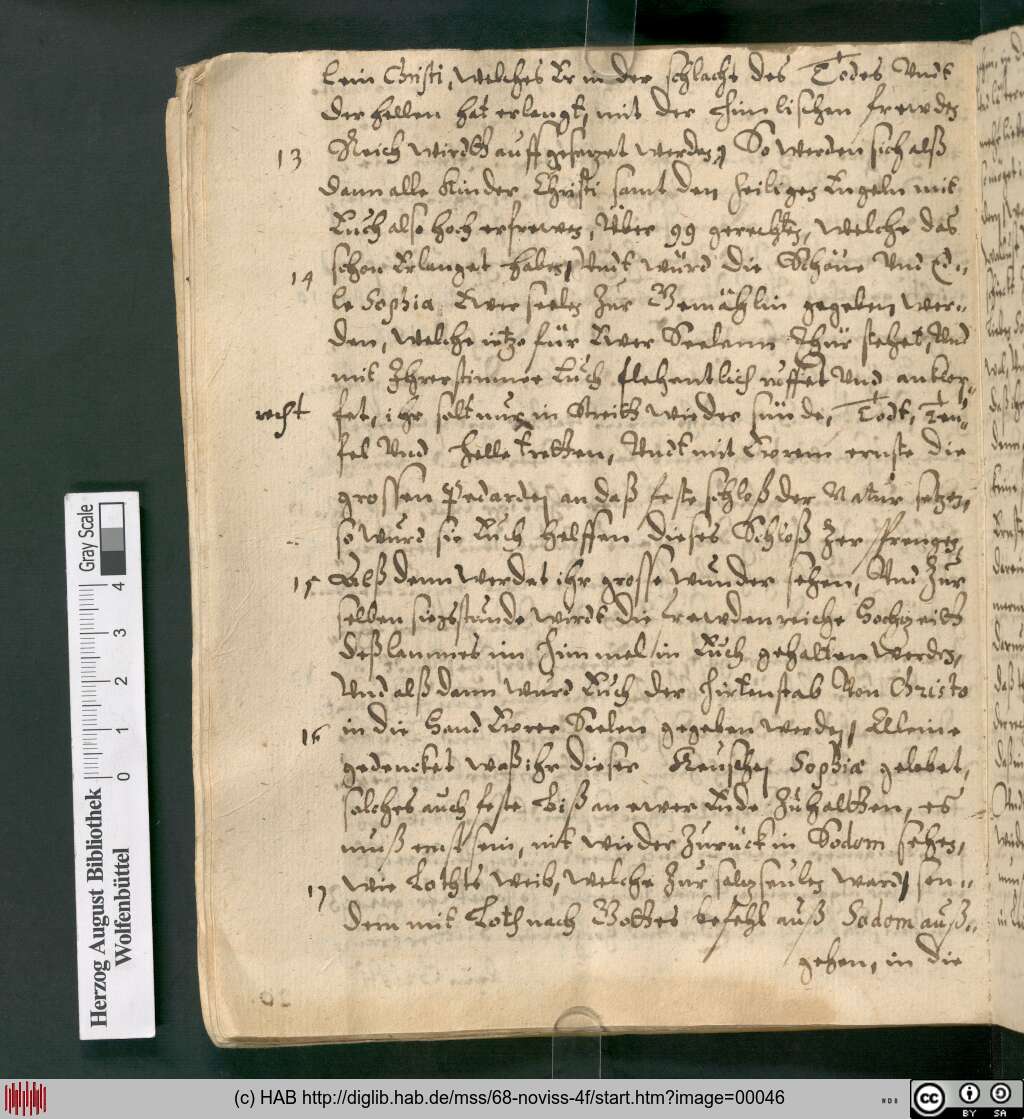 lein Christi, welches Er in der schlacht des Todes Undt
der hellen hat erlangt, mit der himlischen frewden
13 Reich wirdtt auffgesetzet werden, So werden sich alß
dann alle Kinder Christi samt den heiligen Engeln mit
Euch also hoch erfrewen, Uber 99 gerechten, welche das
14 schon Erlanget haben, Undt würd die Schöne Und Ed-
le Sophia Ewer seelen Zur Gemählin gegeben wer-
den, welche itzo für Ewer Seelenn Thür stehet, Und
mit Ihrer stimme Euch flehentlich ruffet Und anklop-
recht fet, ihr solt nur in Streitt wieder sünde, Todt, Teu-
fel Und helle tretten, Undt mit Ewrem ernste die
grossen Pedarden an daß feste schloß der Natur setzen,
so wurd sie Euch helffen dieses Schloß Zersprengen,
15 Alß denn werdet ihr grosse wunder sehen, Und Zur
selben siegsstunde wirdt die frewdenreiche Hochzeitt
deß lammes im himmel in Euch gehalten werden,
Und alß dann wurd Euch der hirtenstab Von Christo
16 in die Hand Ewrer Seelen gegeben werden, Alleine
gedencket waß ihr dieser Keuschen Sophiæ gelobet,
solches auch feste biß an ewer Ende Zuhaltten, es
muß ernst sein, nit wieder Zurück in Sodom sehen,
17 wie Loths weib, welche Zur saltzseulen ward, son-
dern mit Loth nach Gottes befehl auß Sodom auß-
gehen, in die
Herzog August Bibliothek
Wolfenbüttel
Gray Scale
0 1 2 3 4
(c) HAB http://diglib.hab.de/mss/68-noviss-4f/start.htm?image=00046
WDB
cc BY SA